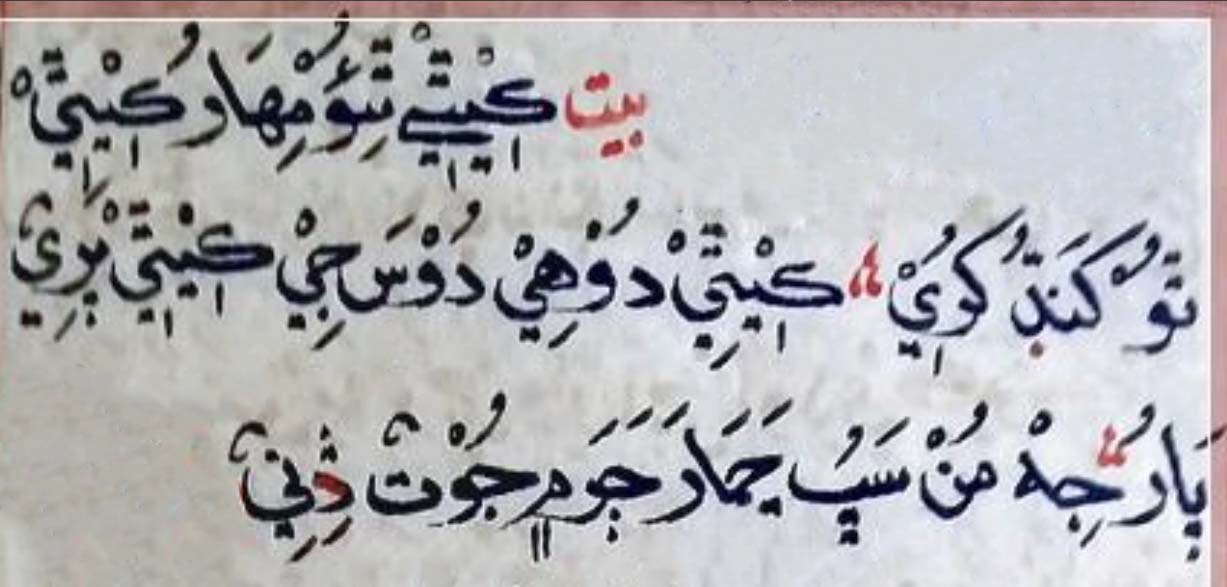 بيت كِيْتِيْ تِيَؤُ مِْهَارُ كِيْتِيْ
تَوُ كَنَڌِ كُوِيْ ؛ كِيْتِيْ دُوْهِيْ دُوْسَ جِيْ كِيْتِيْ بَرِيْ
يَارُ ؛ جِهْ مُنْ سَيُ جَمَارَ جَومٍ جُوْتَ ڎِنِيْ